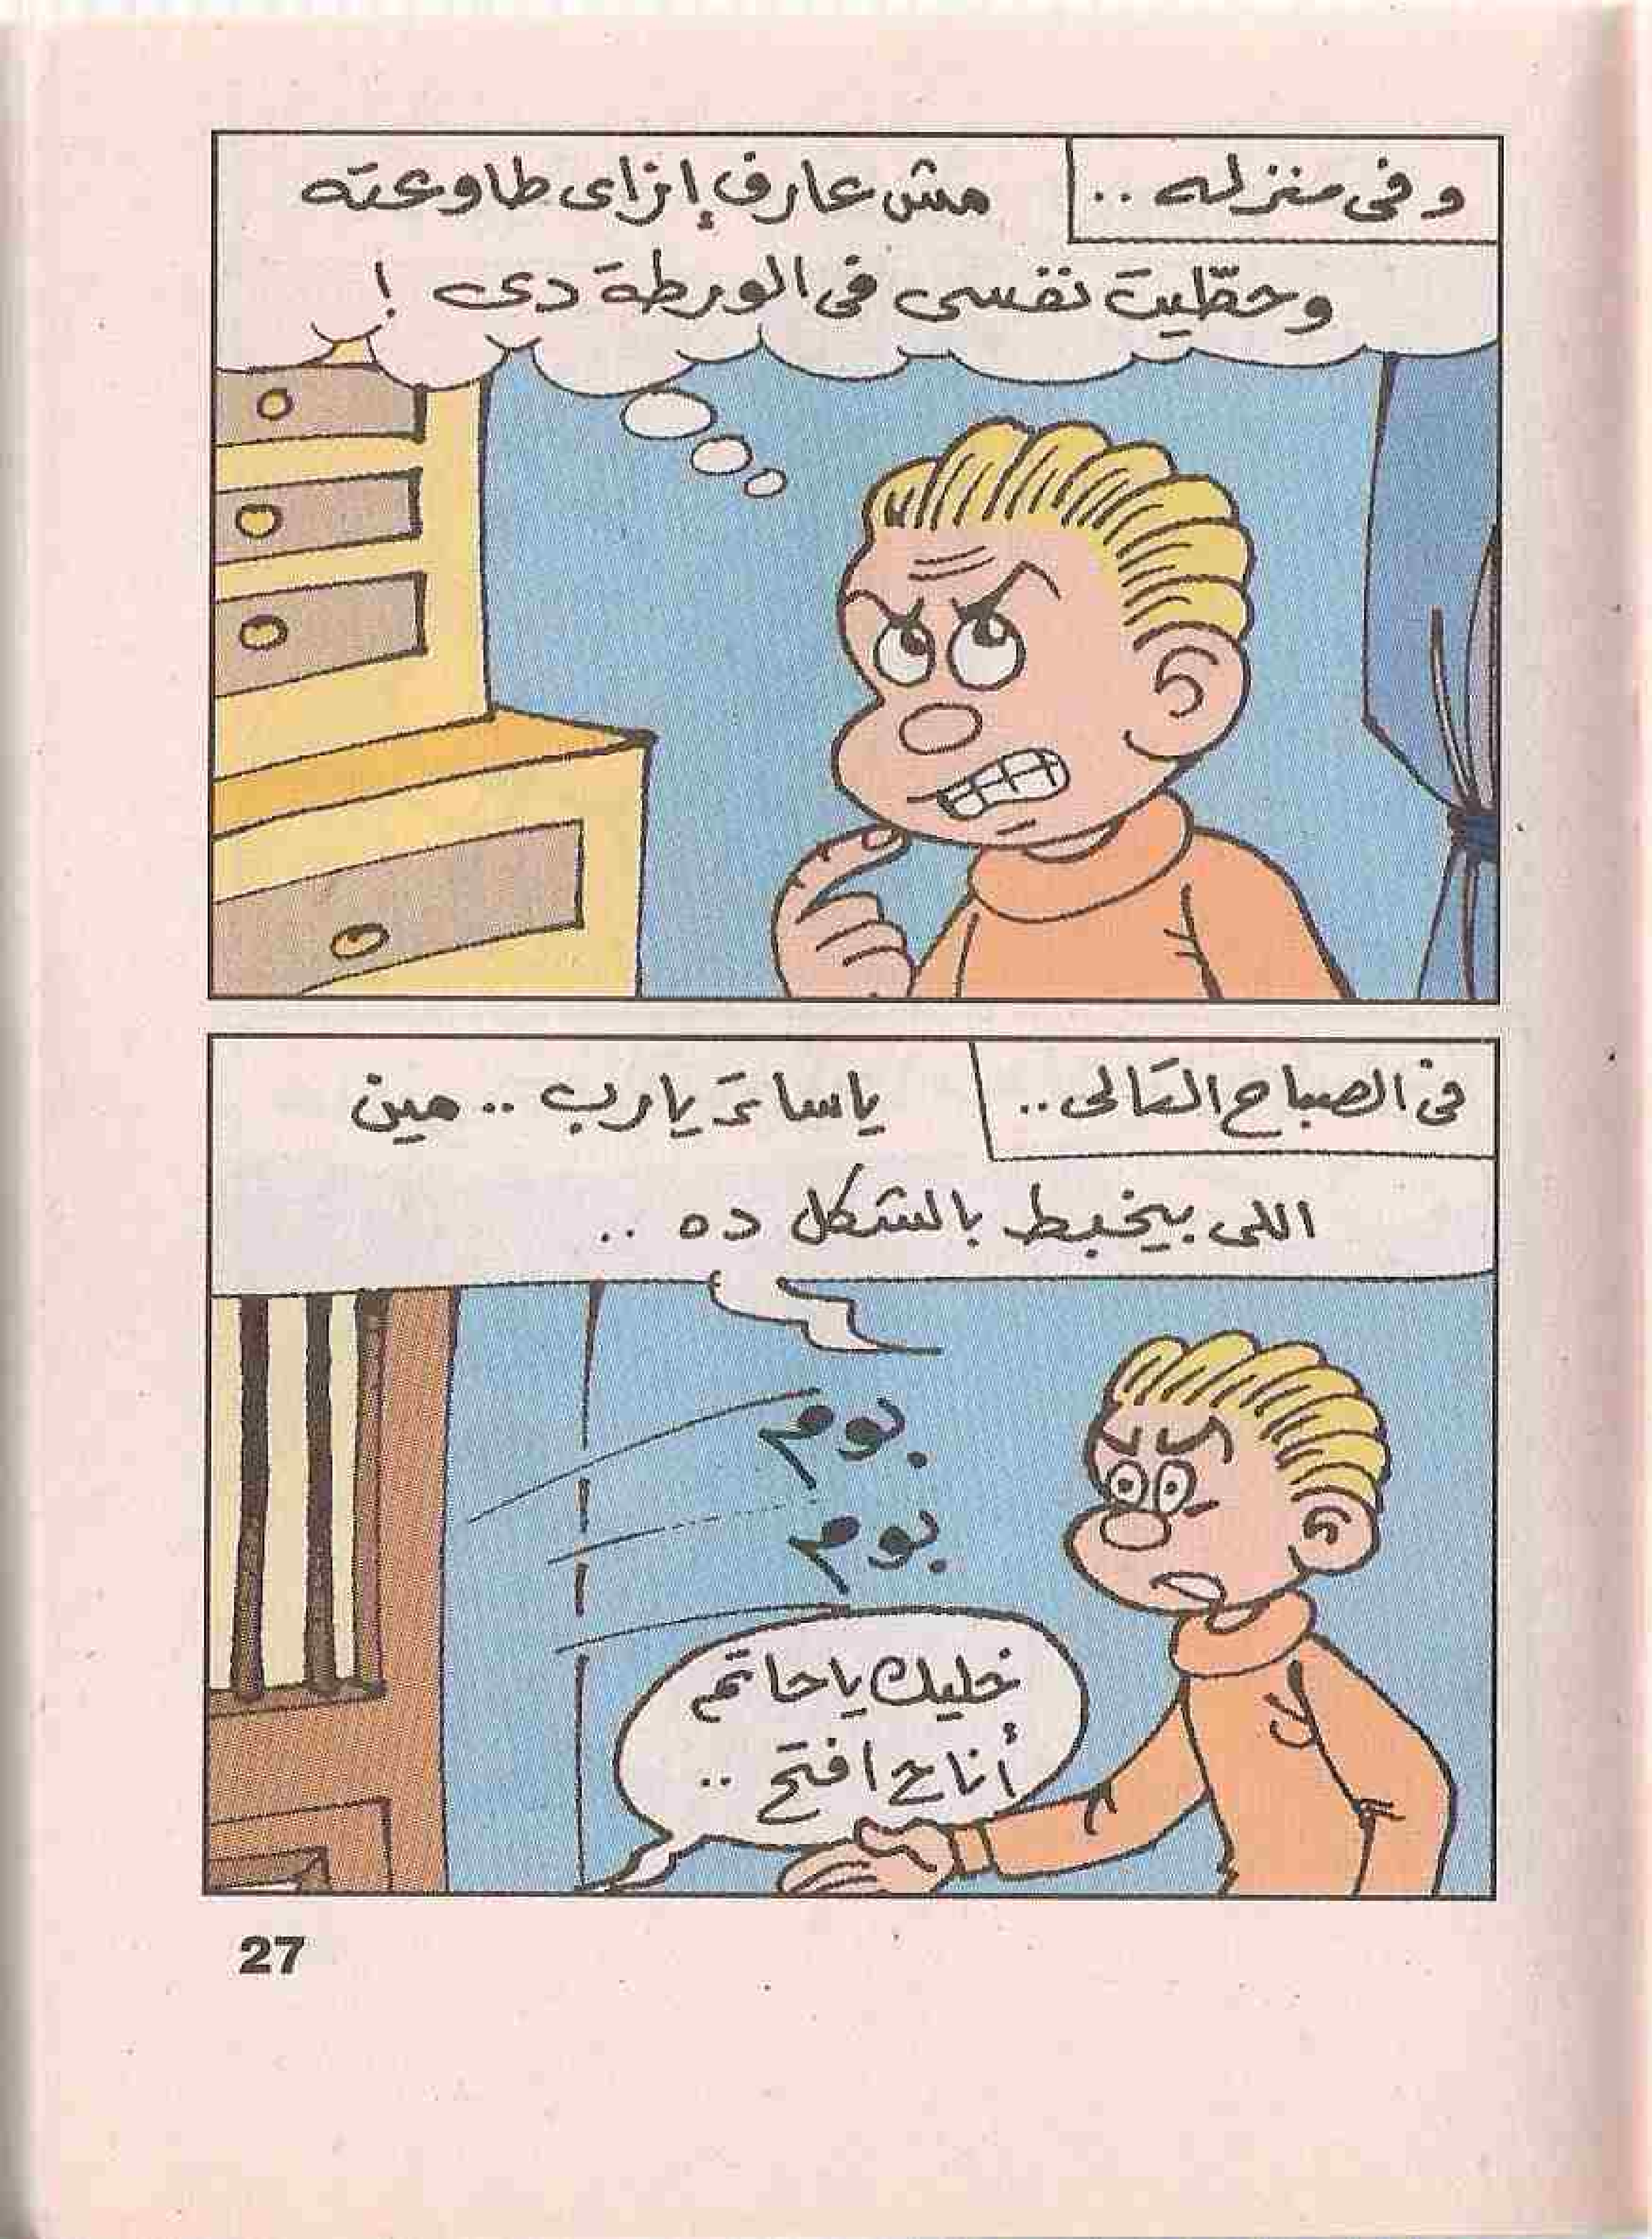 وفى منزله ..
مش عارف إزاى طاوعته
وحطّيت نفسى فى الورطة دى !
فى الصباح التالى ..
ياساتر يارب .. مين
اللى بيخبط بالشكل ده ..
بوم
بوم
خليك ياحاتم
أنا ح افتح ..
27